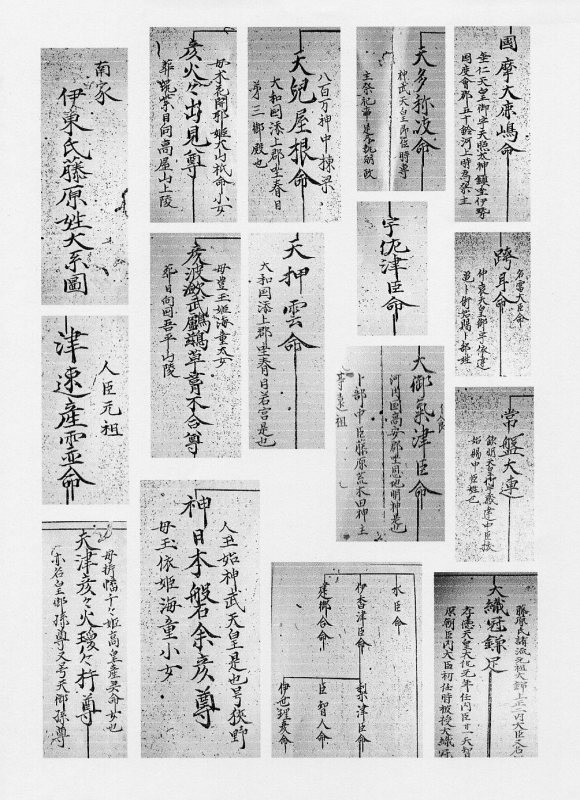 南家
伊東氏藤原姓大系圖
人臣元祖
津速産霊命
母拷幡千々姫高皇産霊命女也
天津彦々火瓊々杵尊
亦名皇御孫尊又号天御孫尊
母木花開耶姫大山祇命小女
彦火々出見尊
葬筑紫日向高屋山上陵
母豊玉姫海童大女
彦波瀲武鸕鷀草葺不合尊
葬日向国吾平山陵
人王始神武天皇是也号狭野
神日本磐余彦尊
母玉依姫海童小女
八百万神中棟梁
天兒屋根命
大和国添上郡坐春日
第三御殿也
天押雲命
大和国添上郡坐春日若宮是也
天多祢岐命
神武天皇御宇時専
主祭祀
宇佐津臣命
大御氣津臣命
河内国高安郡坐恩地明神是也
卜部中臣藤原荒木田神主
等遠祖
水臣命
伊香津臣命
建御合命
梨津臣命
臣智人命
國摩大鹿嶋命
垂仁天皇御宇天照太神鎮坐伊勢
国度會郡五十鈴河上時為祭主
名雷大臣命
跨耳命
仲哀天皇御宇依達
亀卜術給賜卜部姓
常盤大連
欽明天皇
始賜中臣姓也
藤原氏諸流元祖大錦上正二内大臣
大織冠鎌足
孝徳天皇大化元年任内臣 天智
原朝臣内大臣初任時被授大織冠